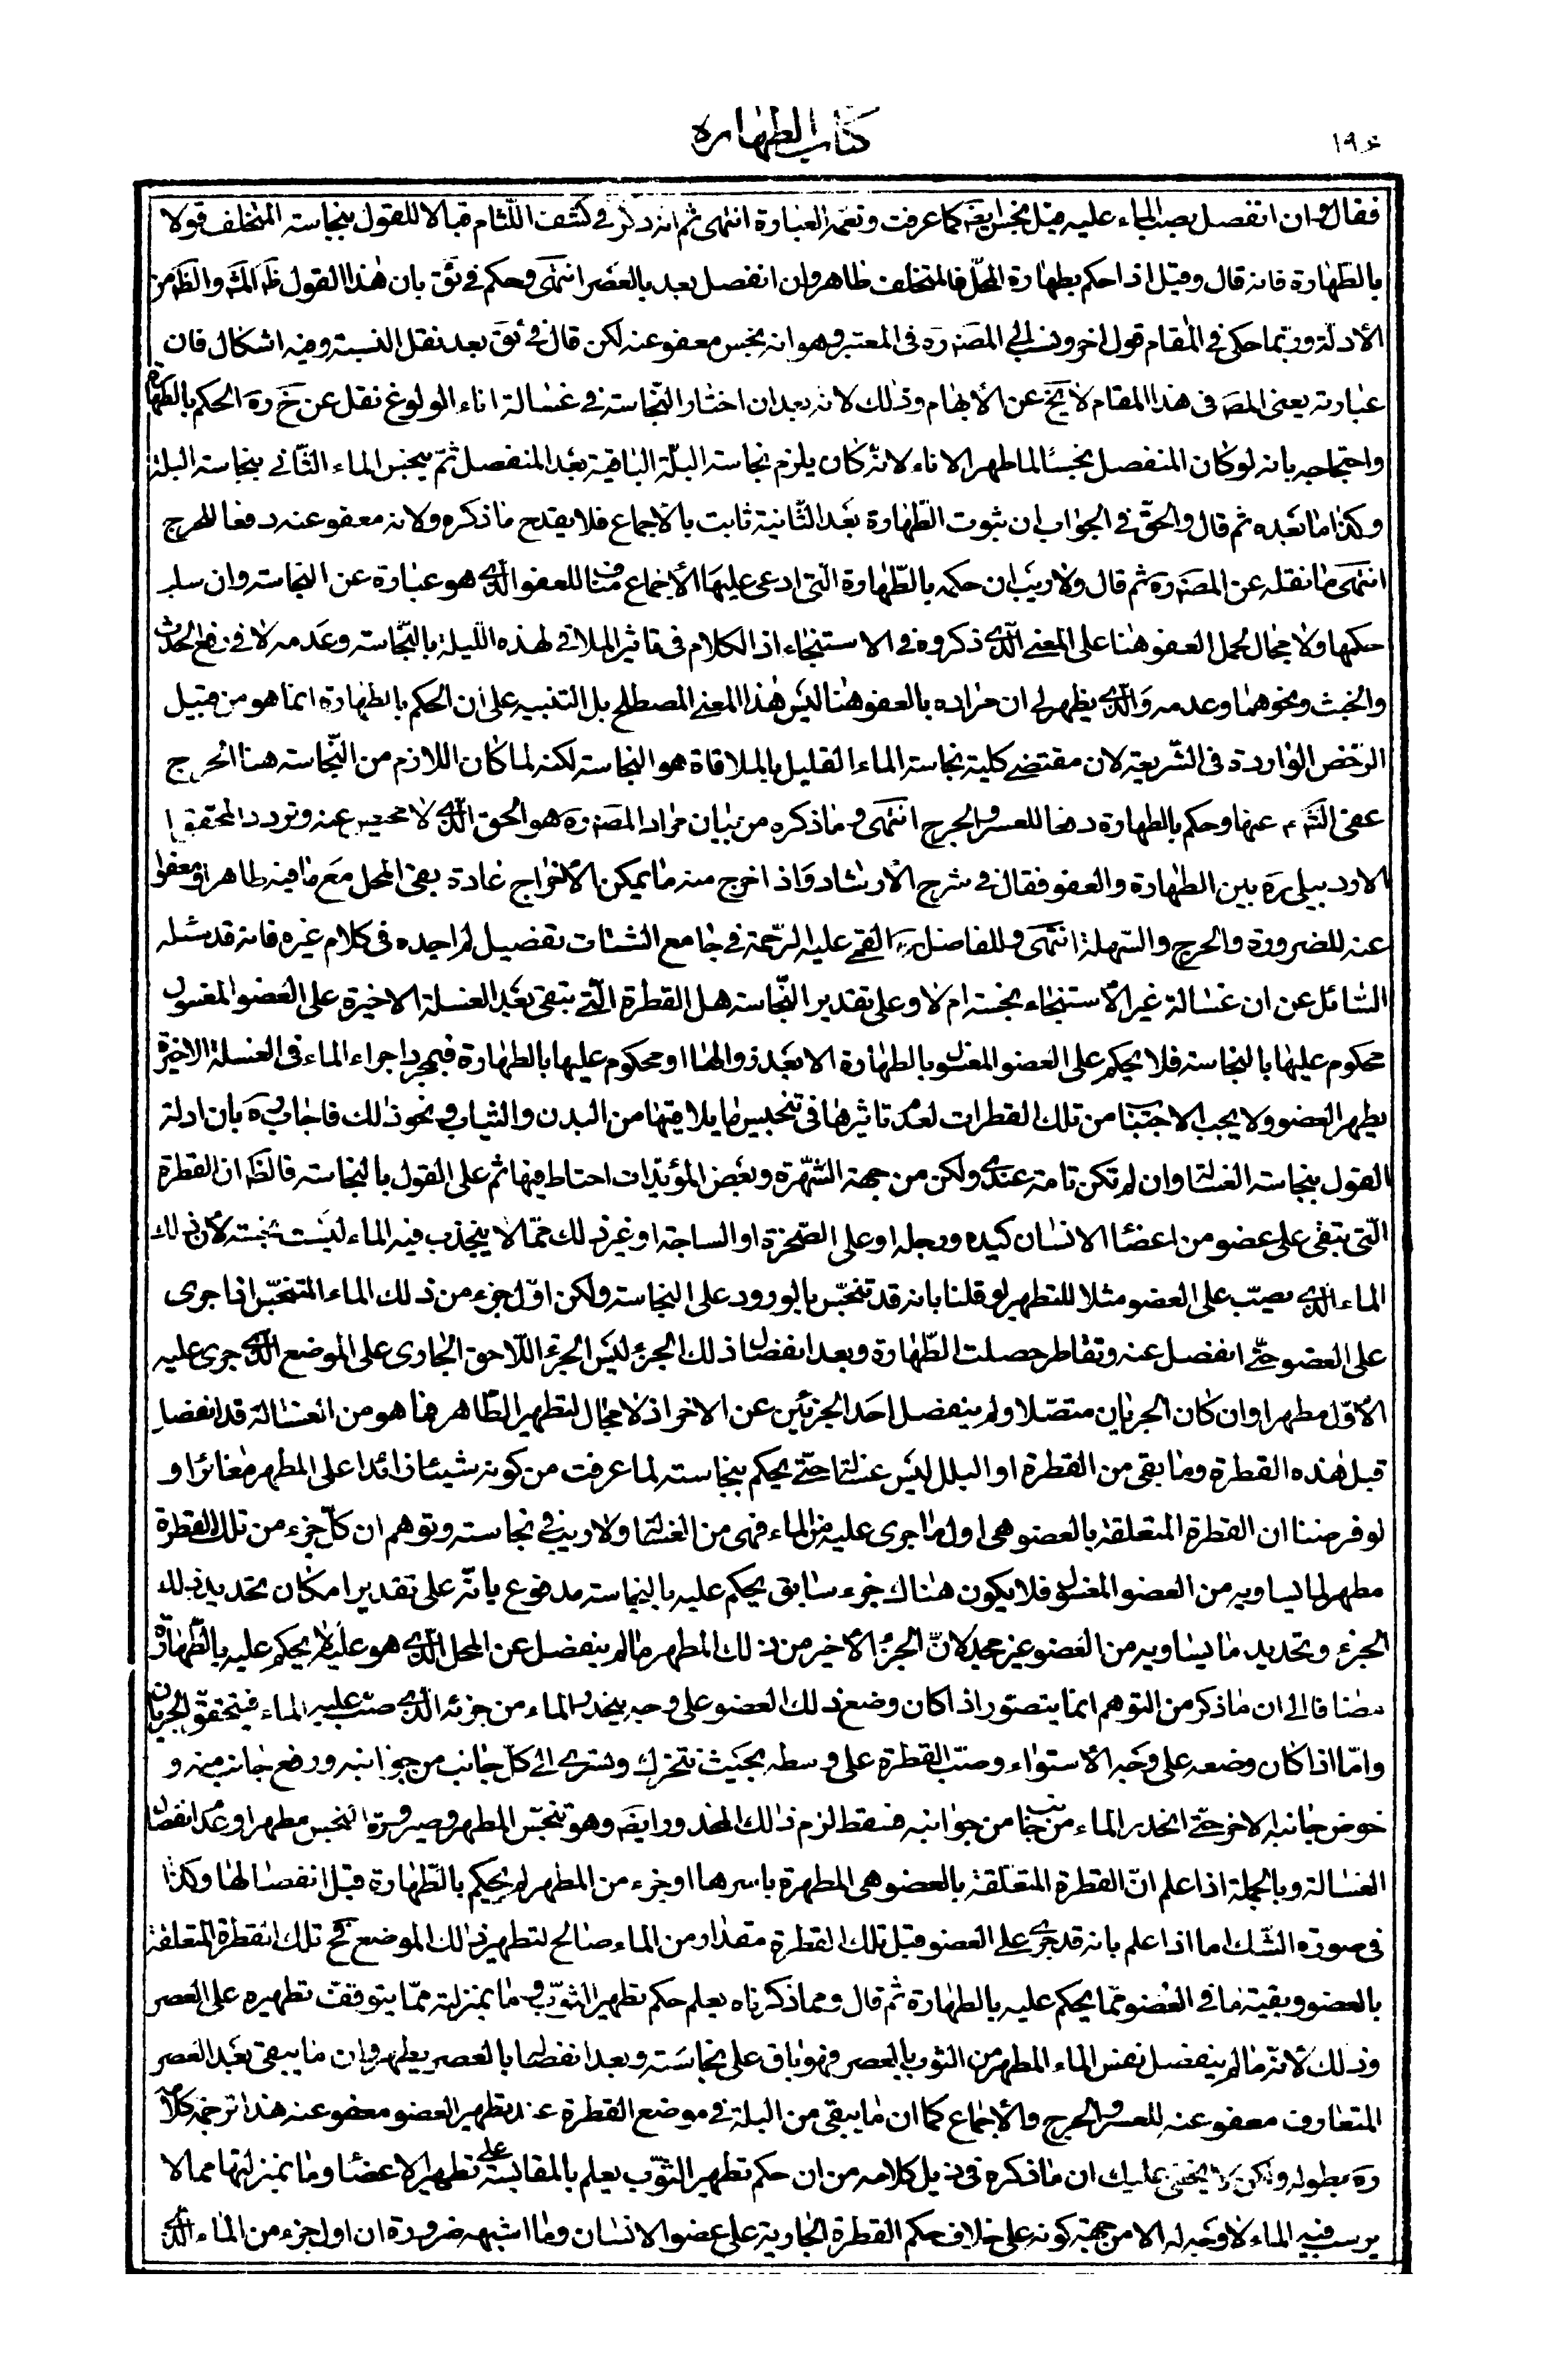 ١٩٤
كتاب الطهارة
فقال و ان انفصل بصب الماء عليه قبل نجس ايضَ كما عرفت وتعمّه العبارة انتهى ثم انه ذكر في كشف اللثام قبالا للقول بنجاسة المتخلف قولا
بالطّهارة فانه قال وقيل اذا حكم بطهارة المحلّ فالمتخلف طاهر وان انفصل بعد بالعصر انتهى وحكم في ئق بان هذا القول ظَ المش والظَ من
الأدلة وربّما حكى في المقام قول اخر ونسب الى المصَ ره في المعتبر وهو انه نجس معفو عنه لكن قال في ئق بعد نقل النسبة وفيه اشكال فان
عبارته يعنى المصَ في هذا المقام لا يخ عن الأبهام وذلك لانه بعد ان اختار النّجاسة في غسالة اناء الولوغ نقل عن خ ره الحكم بالطهارة
واحتجاجه بانه لو كان المنفصل نجسًا لما طهر الاناء لانّه كان يلزم نجاسة البلّة الباقية بعد المنفصل ثمّ ينجس الماء الثّانى بنجاسة البلة
وكذا ما بعده ثم قال والحقّ في الجواب ان ثبوت الطّهارة بعد الثّانية ثابت بالاجماع فلا يقدح ما ذكره ولانه معفو عنه دفعا للحرج
انتهى ما نقله عن المصَ ره ثم قال ولا ريب ان حكمه بالطّهارة الّتى ادعى عليها الأجماع مناف للعفو الّذي هو عبارة عن النجاسة وان سلب
حكمها ولا مجال لحمل العفو هنا على المعنى الّذي ذكروه في الاستنجاء اذ الكلام في تاثير الملاقى لهذه البلّة بالنّجاسة وعدمه لا في رفع الحدث
والخبث ونحوهما وعدمه وَالّذي يظهر لي ان مراده بالعفو هنا ليس هذا المعنى المصطلح بل التنبيه على ان الحكم بالطهارة انما هو من قبيل
الرّخص الواردة في الشّريعة لان مقتضى كلية نجاسة الماء القليل بالملاقاة هو النجاسة لكنه لما كان اللازم من النّجاسة هنا الحرج
عفى الشّم عنها وحكم بالطهارة دفعا للعسر والحرج انتهى و ما ذكره من بيان مراد المصَ ره هو الحق الّذي لا محيص عنه وتردد المحقق
الاردبيلى ره بين الطهارة والعفو فقال في شرح الأرشاد وَاذا اخرج منه ما يمكن الأخراج عادة بقى المحل مع ما فيه طاهرا او معفوا
عنه للضرورة والحرج والسّهلة انتهى وللفاضل القمي عليه الرّحمة في جامع الشتات تفصيل لم اجده في كلام غيره فانه قد سئله
السّائل عن ان غسالة غير الأستنجاء نجسة ام لا وعلى تقدير النّجاسة هل القطرة الّتى تبقى بعد الغسلة الاخيرة على العضو المغسول
محكوم عليها بالنجاسة فلا يحكم على العضو المغسول بالطهارة الا بعد زوالها او محكوم عليها بالطهارة فبمجرد اجراء الماء في الغسلة الاخيرة
يطهر العضو ولا يجب الاجتناب من تلك القطرات لعدم تاثيرها في تنجيس ما يلاقيها من البدن والثياب و نحو ذلك فاجاب ره بان ادلة
القول بنجاسة الغسالة وان لم تكن تامة عندي ولكن من جهة الشّهرة وبعض المؤيّدات احتاط فيها ثم على القول بالنجاسة فالظَ ان القطرة
الّتى تبقى على عضو من اعضاء الانسان كيده ورجله او على الصّخرة او الساجة او غير ذلك ممّا لا ينجذب فيه الماء ليست بنجسة لأن ذلك
الماء الّذي يصبّ على العضو مثلا للتطهير لو قلنا بانه قد تنجّس بالورود على النجاسة ولكن اوّل جزء من ذلك الماء المتنجّس اذا جرى
على العضو حتّى انفصل عنه وتقاطر حصلت الطّهارة وبعد انفصال ذلك الجزء ليس الجزء اللّاحق الجارى على الموضع الّذي جرى عليه
الأوّل مطهرا وان كان الجريان متصّلا ولم ينفصل احد الجزئين عن الاخر اذ لا مجال لتطهير الطّاهر فما هو من الغسالة قد انفصل
قبل هذه القطرة وما بقى من القطرة او البلل ليس غسالة حتّى يحكم بنجاسته لما عرفت من كونه شيئا زائدا على المطهر مغائرا و
لو فرضنا ان القطرة المتعلقة بالعضو هي اول ما اجرى عليه من الماء فهى من الغسالة ولا ريب في نجاسته وتوهم ان كلّ جزء من تلك القطرة
مطهر لما يساويه من العضو المغسول فلا يكون هناك جزء سابق يحكم عليه بالنجاسة مدفوع بانّه على تقدير امكان تحديد ذلك
الجزء وتحديد ما يساويه من العضو غير مجد لانّ الجزء الأخير من ذلك المطهر ما لم ينفصل عن المحل الّذي هو عليه لم يحكم عليه بالطّهارة
مضافا الى ان ما ذكر من التوهم انما يتصوّر اذا كان وضع ذلك العضو على وجه ينحدر الماء من جزئه الّذي صبّ عليه الماء فيتحقق الجريان
وامّا اذا كان وضعه على وجه الأستواء وصبّ القطرة على وسطه بحيث تتحرك وتسرى الى كلّ جانب من جوانبه ورفع جانب منه و
خفض جانبه الاخر حتّى انحدر الماء من جانب من جوانبه فقط لزم ذلك المحذور ايضَ وهو تنجّس المطهر وصيرورة النجس مطهرا وعدم انفصال
الغسالة وبالجملة اذا علم انّ القطرة المتعلّقة بالعضو هى المطهرة باسرها او جزء من المطهر لم يحكم بالطّهارة قبل انفصالها وكذا
في صورة الشّك اما اذا علم بانه قد جرى على العضو قبل تلك القطرة مقدار من الماء صالح لتطهير ذلك الموضع فح تلك القطرة المتعلقة
بالعضو وبقية ما في العضو ممّا يحكم عليه بالطهارة ثم قال ومما ذكرناه يعلم حكم تطهير الثّوب و ما بمنزلته ممّا يتوقّف تطهيره على العصر
وذلك لأنّه ما لم ينفصل نفس الماء المطهر من الثوب بالعصر فهو باق على نجاسته وبعد انفصالها بالعصر يطهر وان ما يبقى بعد العصر
المتعارف معفو عنه للعسر والحرج والأجماع كما ان ما يبقى من البلة في موضع القطرة عند تطهير العضو معفو عنه هذا ترجمة كلامه
ره بطوله ولكن لا يخفى عليك ان ما ذكره في ذيل كلامه من ان حكم تطهير الثّوب يعلم بالمقايسة على تطهير الاعضاء وما بمنزلتها مما لا
يرسب فيه الماء لا وجه له الا من جهة كونه على خلاف حكم القطرة الجارية على عضو الانسان وما اشبهه ضرورة ان اول جزء من الماء الّذي